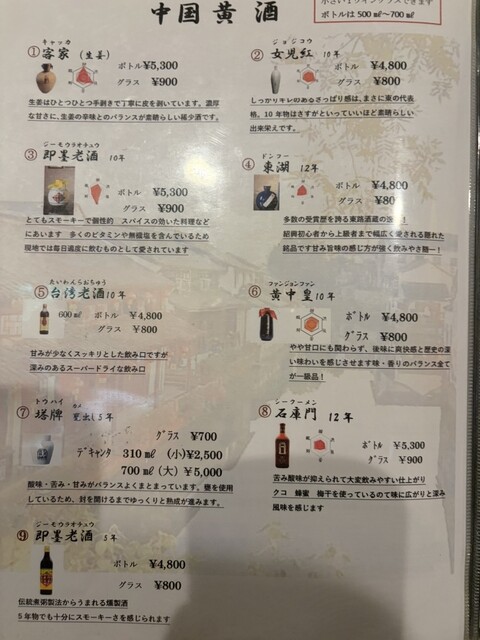 中国黄酒
ボトルは500㎖〜700㎖
キャッカ
①客家(生姜)
ボトル ¥5,300
グラス ¥900
生姜はひとつひとつ手剥きで丁寧に皮を剥いています。濃厚
な甘さに、生姜の辛味とのバランスが素晴らしい稀少酒です。
ジョジコウ
②女児紅 10年
ボトル ¥4,800
グラス ¥800
しっかりキレのあるさっぱり感は、まさに東の代表
格。10年物はさすがといっていいほど素晴らしい
出来栄えです。
ジーモウラオチュウ
③即墨老酒 10年
ボトル ¥5,300
グラス ¥900
とてもスモーキーで個性的 スパイスの効いた料理など
にあいます 多くのビタミンや無機塩を含んでいるため
現地では毎日適度に飲むものとして愛されています
ドンフー
④東湖 12年
ボトル ¥4,800
グラス ¥800
多数の受賞歴を誇る東路酒蔵の
紹興初心者から上級者まで幅広く愛される隠れた
銘品です甘み旨味の感じ方が強く飲みやさ随一!
たいわんらおちゅう
⑤台湾老酒10年
600㎖ ボトル ¥4,800
グラス ¥800
甘みが少なくスッキリとした飲み口ですが
深みのあるスーパードライな飲み口
ファンジョンファン
⑥黄中皇10年
ボトル ¥4,800
グラス ¥800
やや甘口にも関わらず、後味に爽快感と歴史の深
い味わいを感じさせます味・香りのバランス全て
が一級品!
トウハイ
⑦塔牌 甕出し5年
グラス ¥700
デキャンタ 310㎖ (小)¥2,500
700㎖(大)¥5,000
酸味・苦み・甘みがバランスよくまとまっています。甕を使用
しているため、封を開けるまでゆっくりと熟成が進みます。
シークーメン
⑧石庫門 12年
ボトル ¥5,300
グラス ¥900
苦み酸味が抑えられて大変飲みやすい仕上がり
クコ 蜂蜜 梅干を使っているので味に広がりと深み
風味を感じます
ジーモウラオチュウ
⑨即墨老酒 5年
ボトル ¥4,800
グラス ¥800
伝統煮術製法からうまれる燻製酒
5年物でも十分にスモーキーさを感じられます